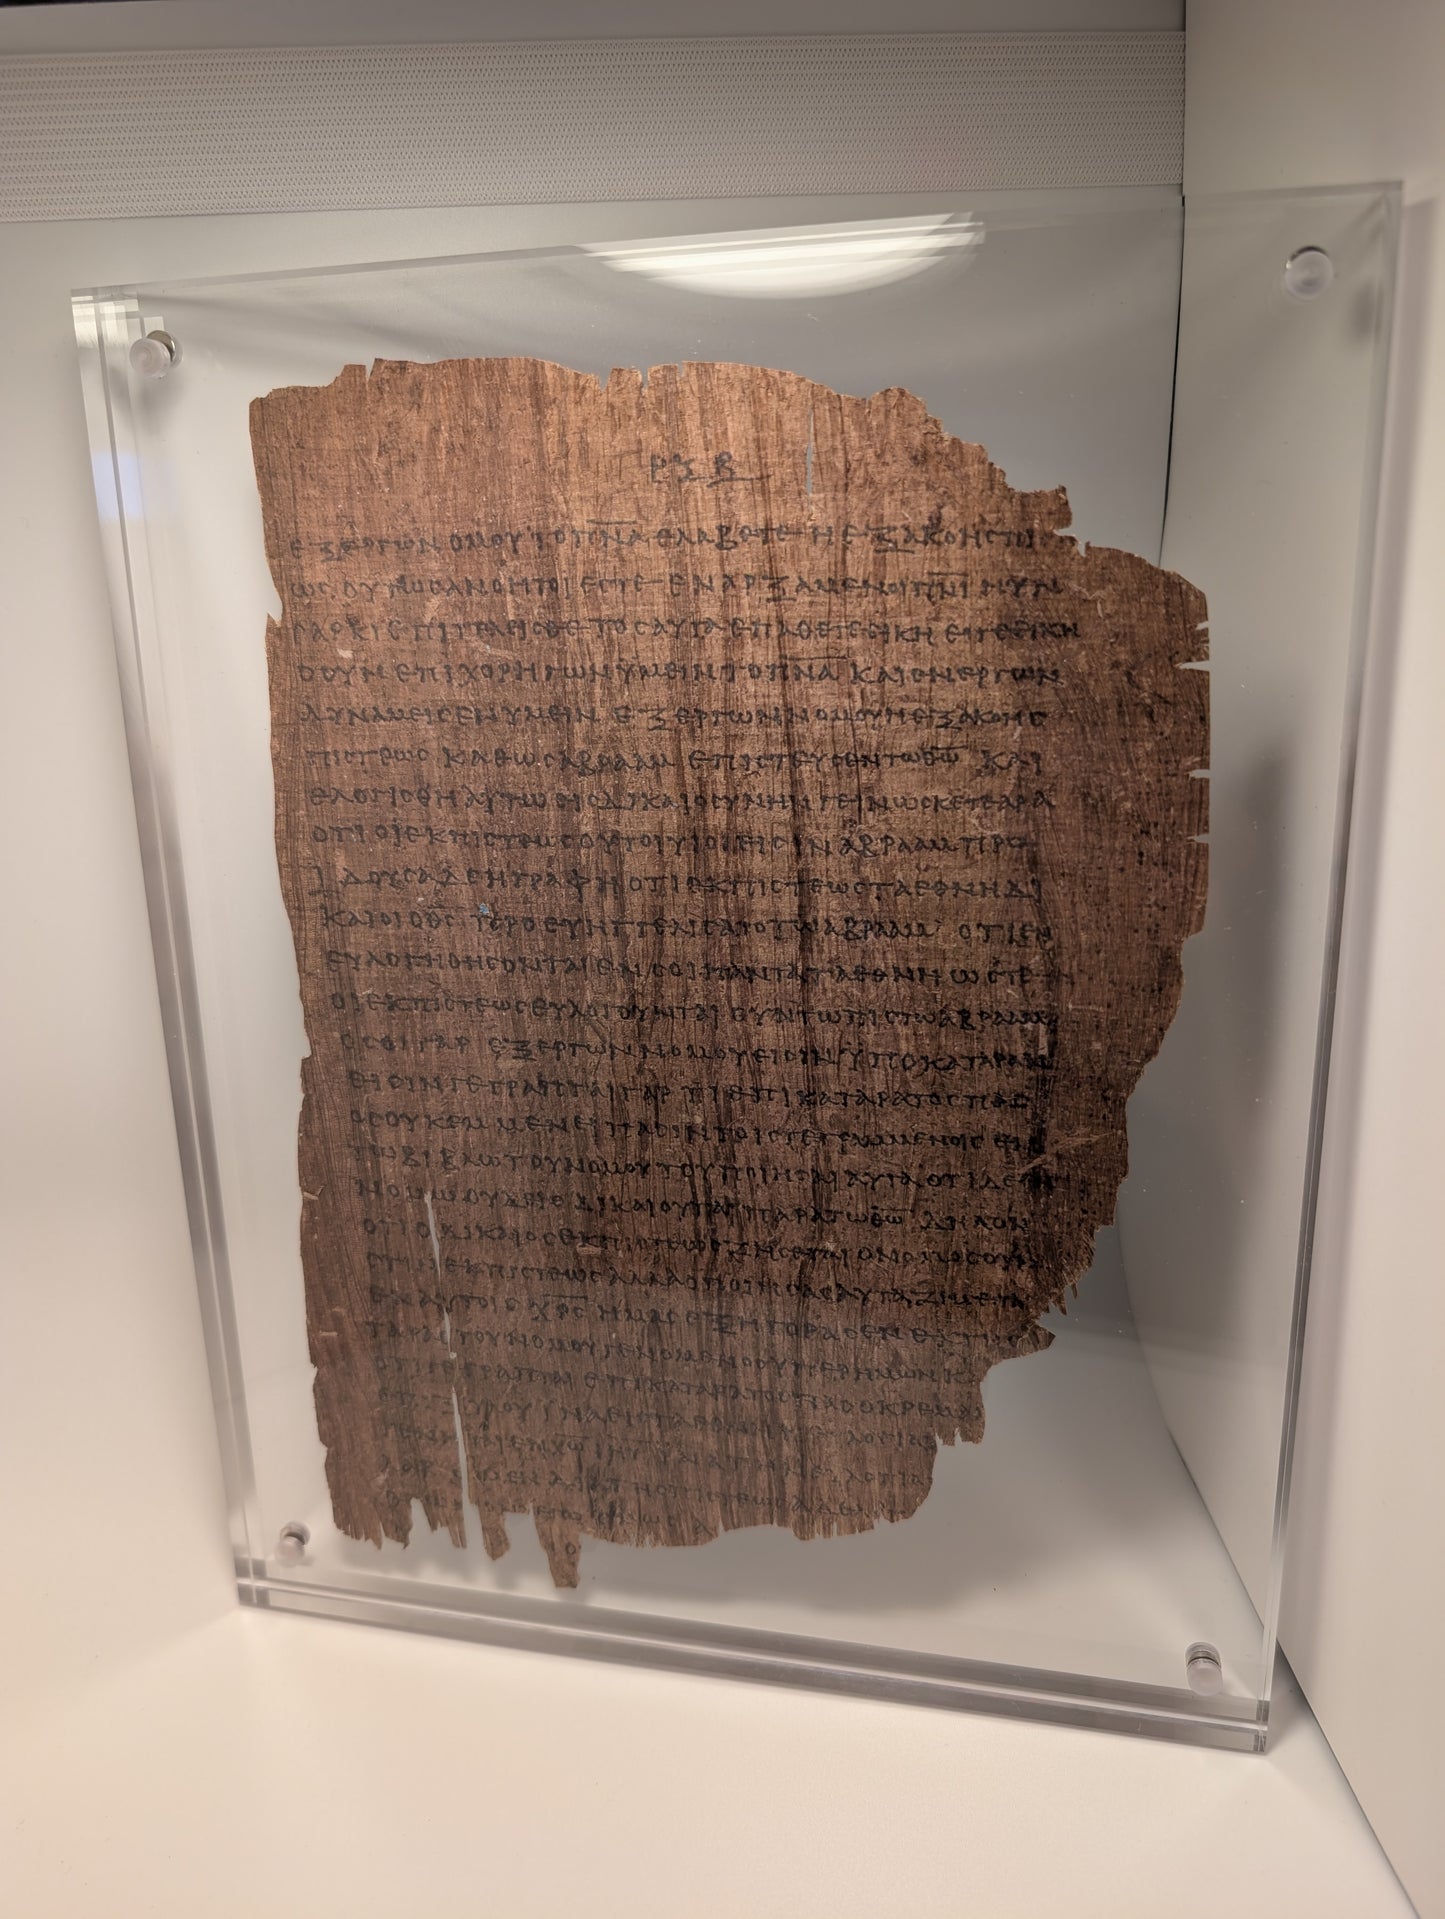 ΡΞΒ
ΕΞ ΕΡΓΩΝ ΟΜΟΥ ΤΟ Π̅Ν̅Α̅ ΕΛΑΒΕΤΕ Η ΕΞ ΑΚΟΗϹ ΠΙ
ΩϹ ΟΥΤΩϹ ΑΝΟΗΤΟΙ ΕϹΤΕ ΕΝΑΡΞΑΜΕΝΟΙ Π̅Ν̅Ι̅ ΝΥΝ
ϹΑΡΚΙ ΕΠΙΤΕΛΕΙϹΘΕ ΤΟϹΑΥΤΑ ΕΠΑΘΕΤΕ ΕΙΚΗ ΕΙ ΓΕ ΕΙΚΗ
Ο ΟΥΝ ΕΠΙΧΟΡΗΓΩΝ ΫΜΕΙΝ ΤΟ Π̅Ν̅Α̅ ΚΑΙ ΕΝΕΡΓΩΝ
ΔΥΝΑΜΕΙϹ ΕΝ ΥΜΕΙΝ ΕΞ ΕΡΓΩΝ ΝΟΜΟΥ Η ΕΞ ΑΚΟΗϹ
ΠΙϹΤΕΩϹ ΚΑΘΩϹ ΑΒΡΑΑΜ ΕΠΙϹΤΕΥϹΕΝ ΤΩ Θ̅Ω̅ ΚΑΙ
ΕΛΟΓΙϹΘΗ ΑΥΤΩ ΕΙϹ ΔΙΚΑΙΟϹΥΝΗΝ ΓΕΙΝΩϹΚΕΤΕ ΑΡΑ
ΟΤΙ ΟΙ ΕΚ ΠΙϹΤΕΩϹ ΟΥΤΟΙ ΥΙΟΙ ΕΙϹΙΝ ΑΒΡΑΑΜ ΠΡΟ
ΪΔΟΥϹΑ ΔΕ Η ΓΡΑΦΗ ΟΤΙ ΕΚ ΠΙϹΤΕΩϹ ΤΑ ΕΘΝΗ ΔΙ
ΚΑΙΟΙ Ο Θ̅Ϲ̅ ΠΡΟΕΥΗΓΓΕΛΙϹΑΤΟ ΤΩ ΑΒΡΑΑΜ ΟΤΙ ΕΝ
ΕΥΛΟΓΗΘΗϹΟΝΤΑΙ ΕΝ ϹΟΙ ΠΑΝΤΑ ΤΑ ΕΘΝΗ ΩϹΤΕ
ΟΙ ΕΚ ΠΙϹΤΕΩϹ ΕΥΛΟΓΟΥΝΤΑΙ ϹΥΝ ΤΩ ΠΙϹΤΩ ΑΒΡΑΑΜ
ΟϹΟΙ ΓΑΡ ΕΞ ΕΡΓΩΝ ΝΟΜΟΥ ΕΙϹΙΝ ΫΠΟ ΚΑΤΑΡΑΝ
ΕΙϹΙΝ ΓΕΓΡΑΠΤΑΙ ΓΑΡ ΟΤΙ ΕΠΙΚΑΤΑΡΑΤΟϹ ΠΑϹ
ΟϹ ΟΥΚ ΕΜΜΕΝΕΙ ΠΑϹΙΝ ΤΟΙϹ ΓΕΓΡΑΜΜΕΝΟΙϹ ΕΝ
ΤΩ ΒΙΒΛΙΩ ΤΟΥ ΝΟΜΟΥ ΤΟΥ ΠΟΙΗϹΑΙ ΑΥΤΑ ΟΤΙ ΔΕ ΕΝ
ΝΟΜΩ ΟΥΔΕΙϹ ΔΙΚΑΙΟΥΤΑΙ ΠΑΡΑ ΤΩ Θ̅Ω̅ ΔΗΛΟΝ
ΟΤΙ Ο ΔΙΚΑΙΟϹ ΕΚ ΠΙϹΤΕΩϹ ΖΗϹΕΤΑΙ Ο ΝΟΜΟϹ ΟΥΚ
ΕϹΤΙΝ ΕΚ ΠΙϹΤΕΩϹ ΑΛΛΑ Ο ΠΟΙΗϹΑϹ ΑΥΤΑ ΖΗϹΕΤΑΙ
ΕΝ ΑΥΤΟΙϹ Χ̅Ρ̅Ϲ̅ ΗΜΑϹ ΕΞΗΓΟΡΑϹΕΝ ΕΚ ΤΗϹ
ΤΑΡΑϹ ΤΟΥ ΝΟΜΟΥ ΓΕΝΟΜΕΝΟϹ ΥΠΕΡ ΗΜΩΝ ΚΑ
ΟΤΙ ΓΕΓΡΑΠΤΑΙ ΕΠΙΚΑΤΑΡΑΤΟϹ ΠΑϹ Ο ΚΡΕΜΑ
ΞΥΛΟΥ ΙΝΑ ΕΙϹ ΤΑ ΕΘΝΗ